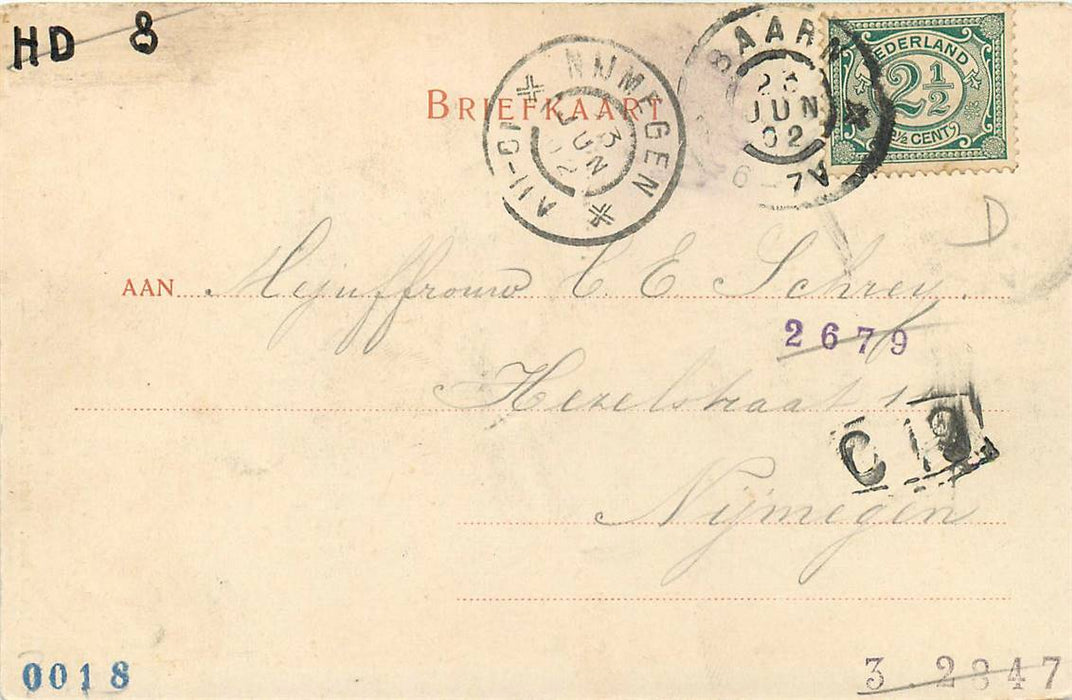 HD 8
BRIEFKAART
NIJMEGEN
3
JUN
02
10-11V
BAARN
23
JUN
02
6-7A
NEDERLAND
2½
2½ CENT
D
AAN Mejuffrouw C. E. Schrey.
2679
Hezelstraat
C 19
Nijmegen
0018
3 2847